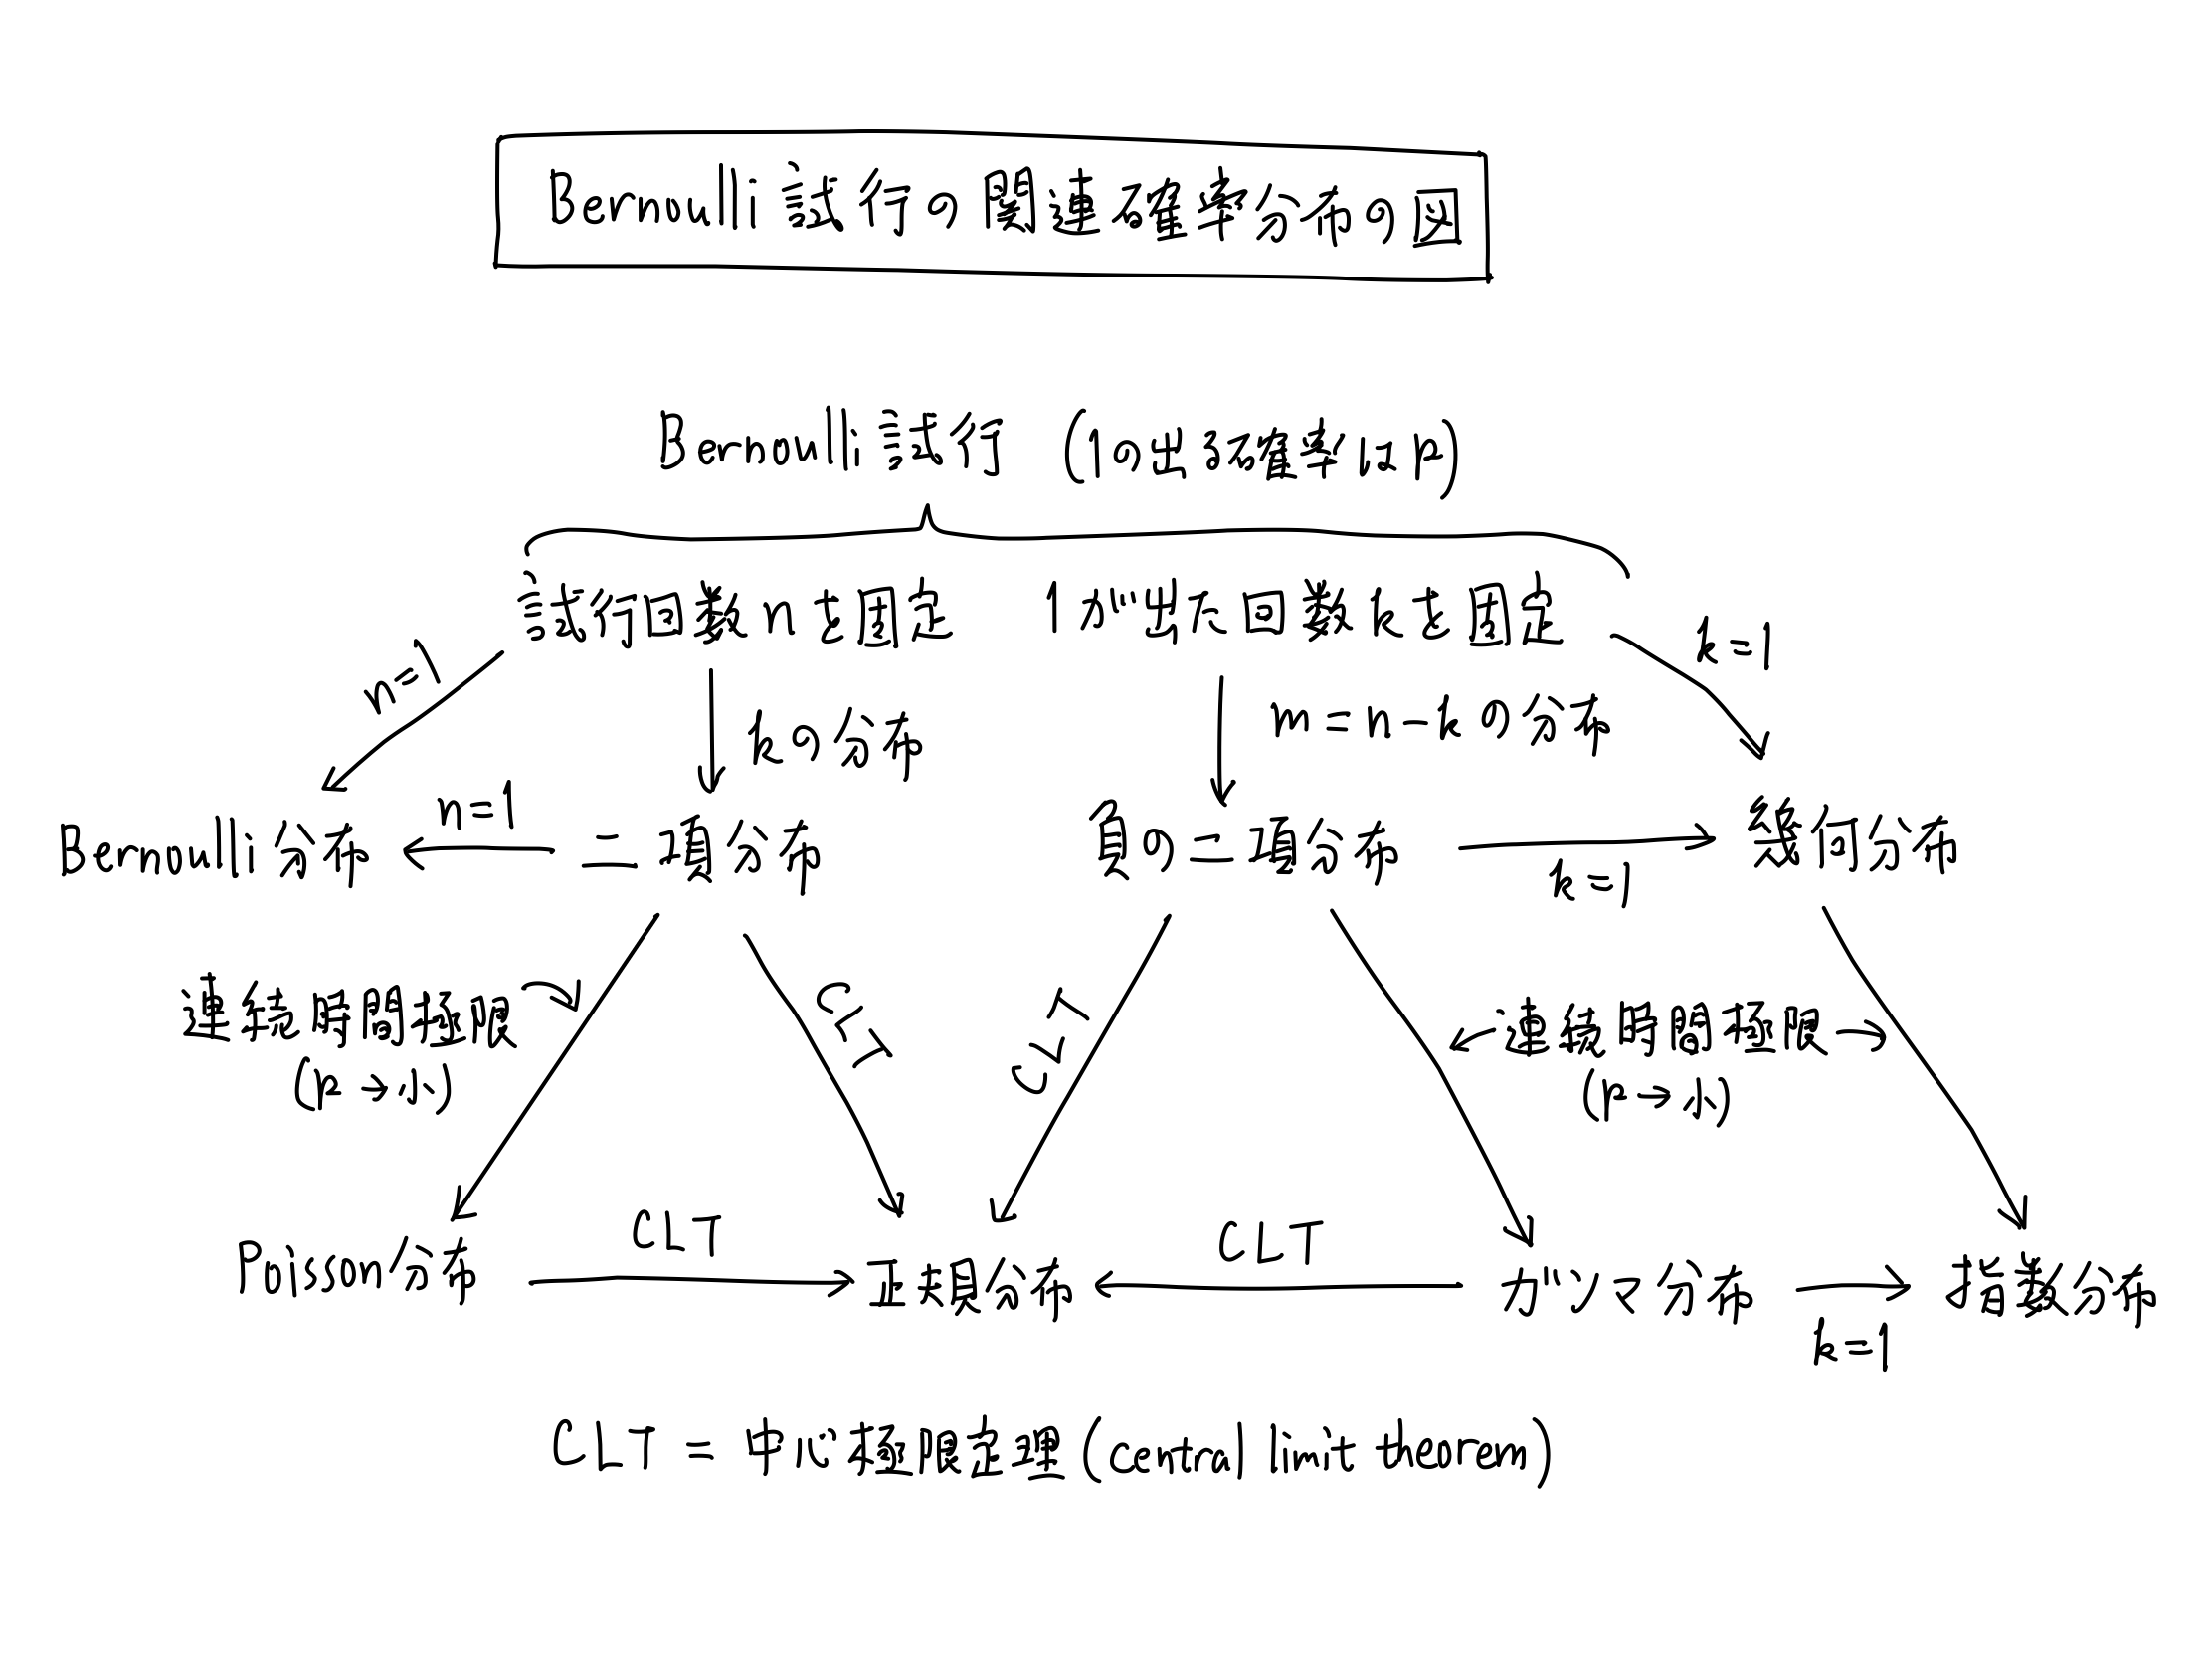 Bernoulli試行の関連確率分布の図
Bernoulli試行 (1の出る確率はp)
試行回数nを固定 1が出た回数kを固定
n=1
k=1
kの分布
m=n−kの分布
n=1
Bernoulli分布
二項分布
負の二項分布
幾何分布
k=1
連続時間極限
(p→小)
CLT
CLT
連続時間極限
(p→小)
CLT
CLT
Poisson分布
正規分布
ガンマ分布
指数分布
k=1
CLT = 中心極限定理(central limit theorem)